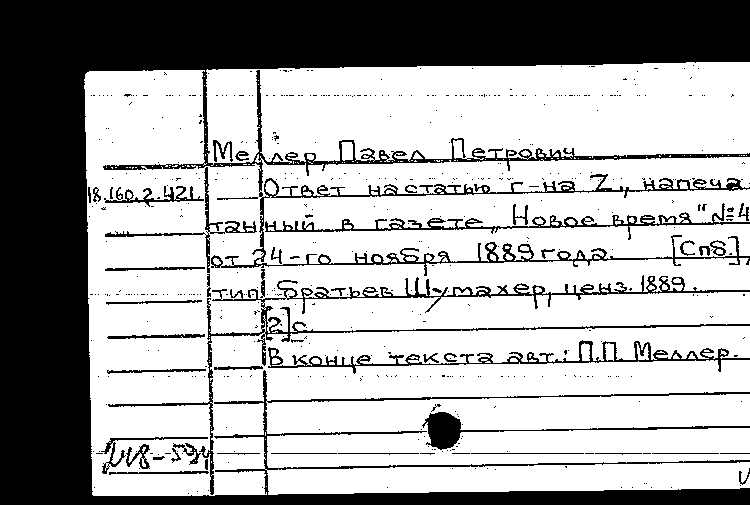 Меллер, Павел Петрович
18.160.2.421 Ответ на статью г-на Z., напеча
танный в газете „Новое время" № 4
от 24-го ноября 1889 года. [Спб.],
тип. братьев Шумахер, ценз. 1889.
[2] с.
В конце текста авт.: П.П. Меллер.
248-594